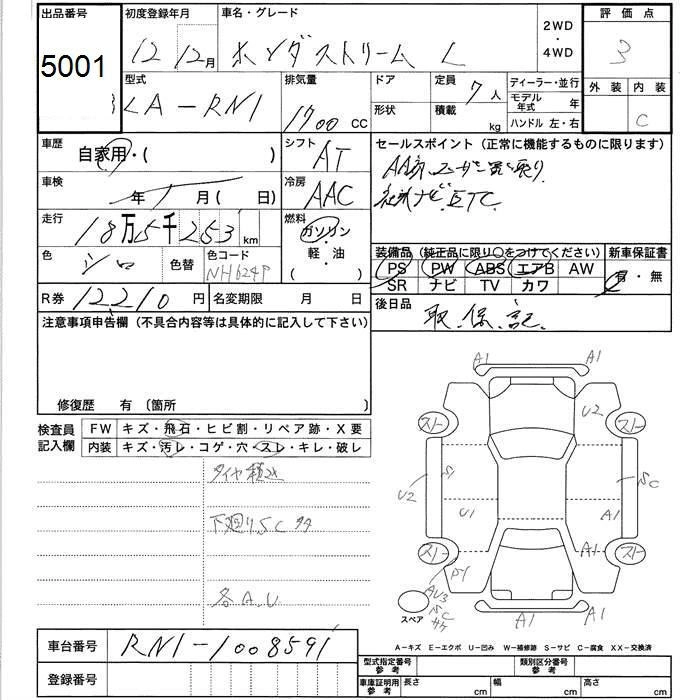 出品番号 初度登録年月 車名・グレード 2WD ・ 4WD 評価点
5001 12年 12月 ホンダストリーム L 3
型式 排気量 ドア 定員 7人 ディーラー・並行 外装 内装
LA-RN1 1700 CC 形状 積載 kg モデル年式 年 C
ハンドル 左・右
車歴 自家用・( ) シフト AT セールスポイント (正常に機能するものに限ります)
車検 年 月 ( 日) 冷房 AAC
走行 18万5千253km 燃料 ガソリン・軽・油 ( ) 社外ナビ ETC
色 シロ 色替 色コード NH624P 装備品 (純正品に限り○をつけてください) 新車保証書
PS PW ABS エアB AW 有・無
SR ナビ TV カワ
R券 12210円 名変期限 月 日 後日品 取.保.記
注意事項申告欄 (不具合内容等は具体的に記入して下さい)
修復歴 有 〔箇所 〕
検査員記入欄 FW キズ・飛石・ヒビ割・リペア跡・X要
内装 キズ・汚レ・コゲ・穴・スレ・キレ・破レ
タイヤ積込
下廻りSC
各A.U
A1 A1
U2
スト スト
U2 S1 SC
U1 A1
A1
スト スト
P1
AU3
SC
サケ
スペア A1 A1
A-キズ E-エクボ U-凹み W-補修跡 S-サビ C-腐食 XX-交換済
車台番号 RN1-1008591
登録番号
型式指定番号 参考 類別区分番号 参考
車庫証明用 参考 長さ cm 幅 cm 高さ cm